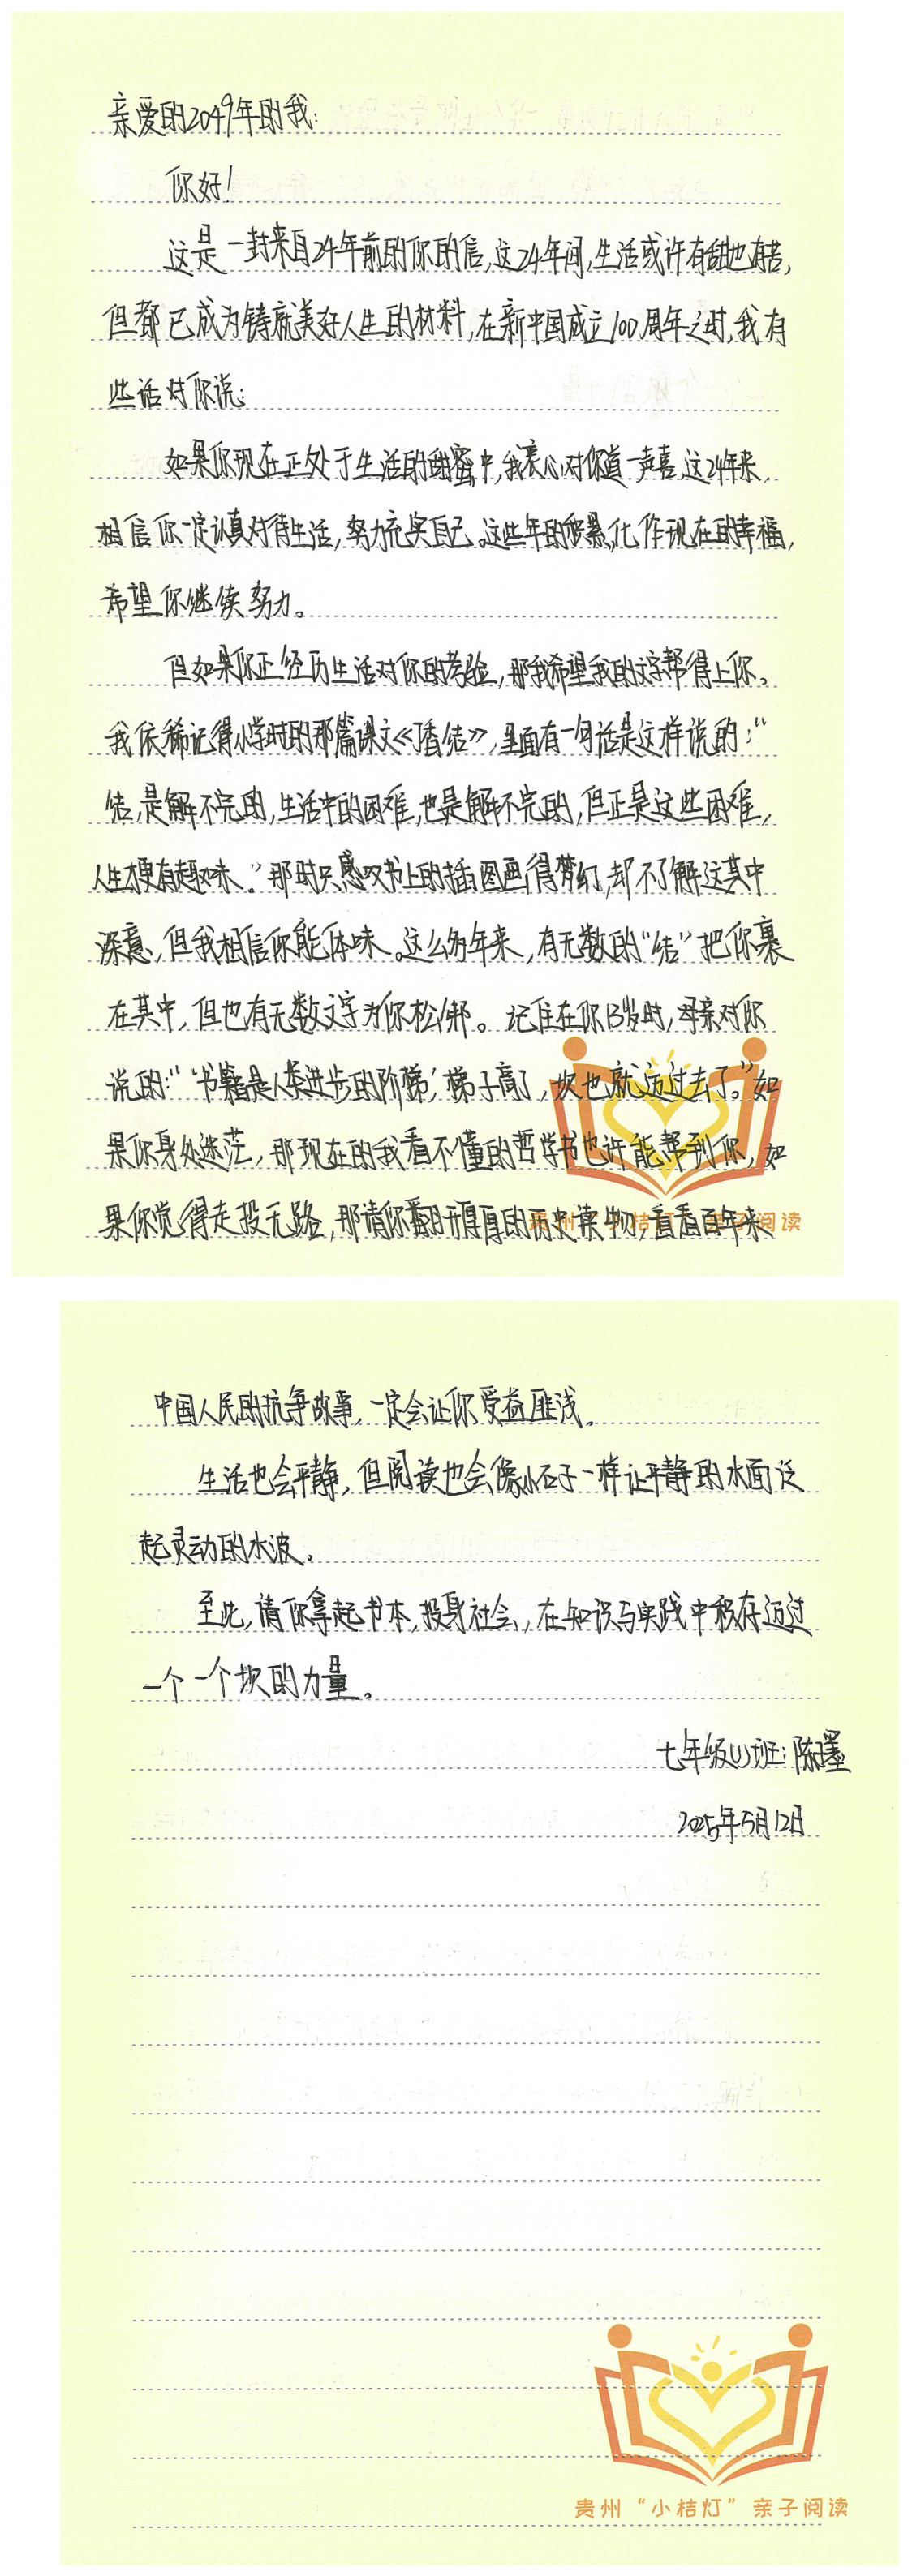 亲爱的2049年的我：
你好！
这是一封来自24年前的你的信，这24年间，生活或许有甜也有苦，
但都已成为铸就美好人生的材料，在新中国成立100周年之时，我有
些话对你说：
如果你现在正处于生活的甜蜜中，我衷心对你道一声喜，这24年来，
相信你一定认真对待生活，努力充实自己。这些年的积累，化作现在的幸福，
希望你继续努力。
但如果你正经历生活对你的考验，那我希望我的文字帮得上你。
我依稀记得小学时的那篇课文《丁香结》，里面有一句话是这样说的：“
结，是解不完的，生活中的困难，也是解不完的，但正是这些困难，
人生才更有趣味。”那时只感叹书上的插图画得梦幻，却不了解这其中
深意，但我相信你能体味。这么多年来，有无数的“结”把你裹
在其中，但也有无数文字为你松绑。记住在你13岁时，母亲对你
说的：“‘书籍是人类进步的阶梯’梯子高了，坎也就迈过去了。”如
果你身处迷茫，那现在的我看不懂的哲学书也许能帮到你，如
果你觉得走投无路，那请你翻开厚厚的历史读物，看看百年来
贵州“小桔灯”亲子阅读
中国人民的抗争故事，一定会让你受益匪浅。
生活也会平静，但阅读也会像小石子一样让平静的水面泛
起灵动的水波。
至此，请你拿起书本，投身社会，在知识与实践中积存迈过
一个一个坎的力量。
七年级(1)班：陈瑾
2025年5月12日
贵州“小桔灯”亲子阅读